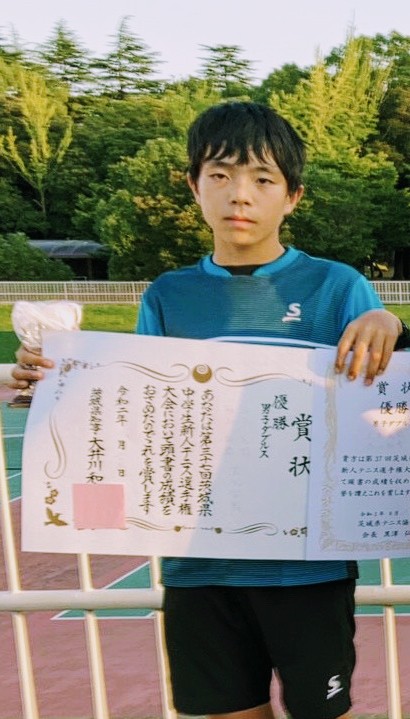 賞状
優勝
男子ダブルス
あなたは第三十七回茨城県
中学生新人テニス選手権
大会において頭書の成績を
おさめたのでこれを賞します
令和二年 月 日
茨城県知事 大井川 和
賞状
優勝
男子ダブ
貴方は第37回茨城
新人テニス選手権大
て頭書の成績を収め
茨城県テニス協
会長
S
S